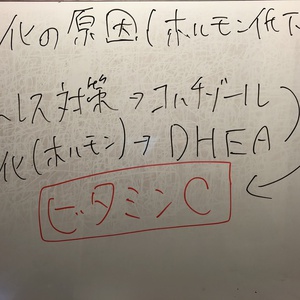 化の原因(ホルモン低下
トレス対策→コルチゾール
化(ホルモン)→DHEA
ビタミンC